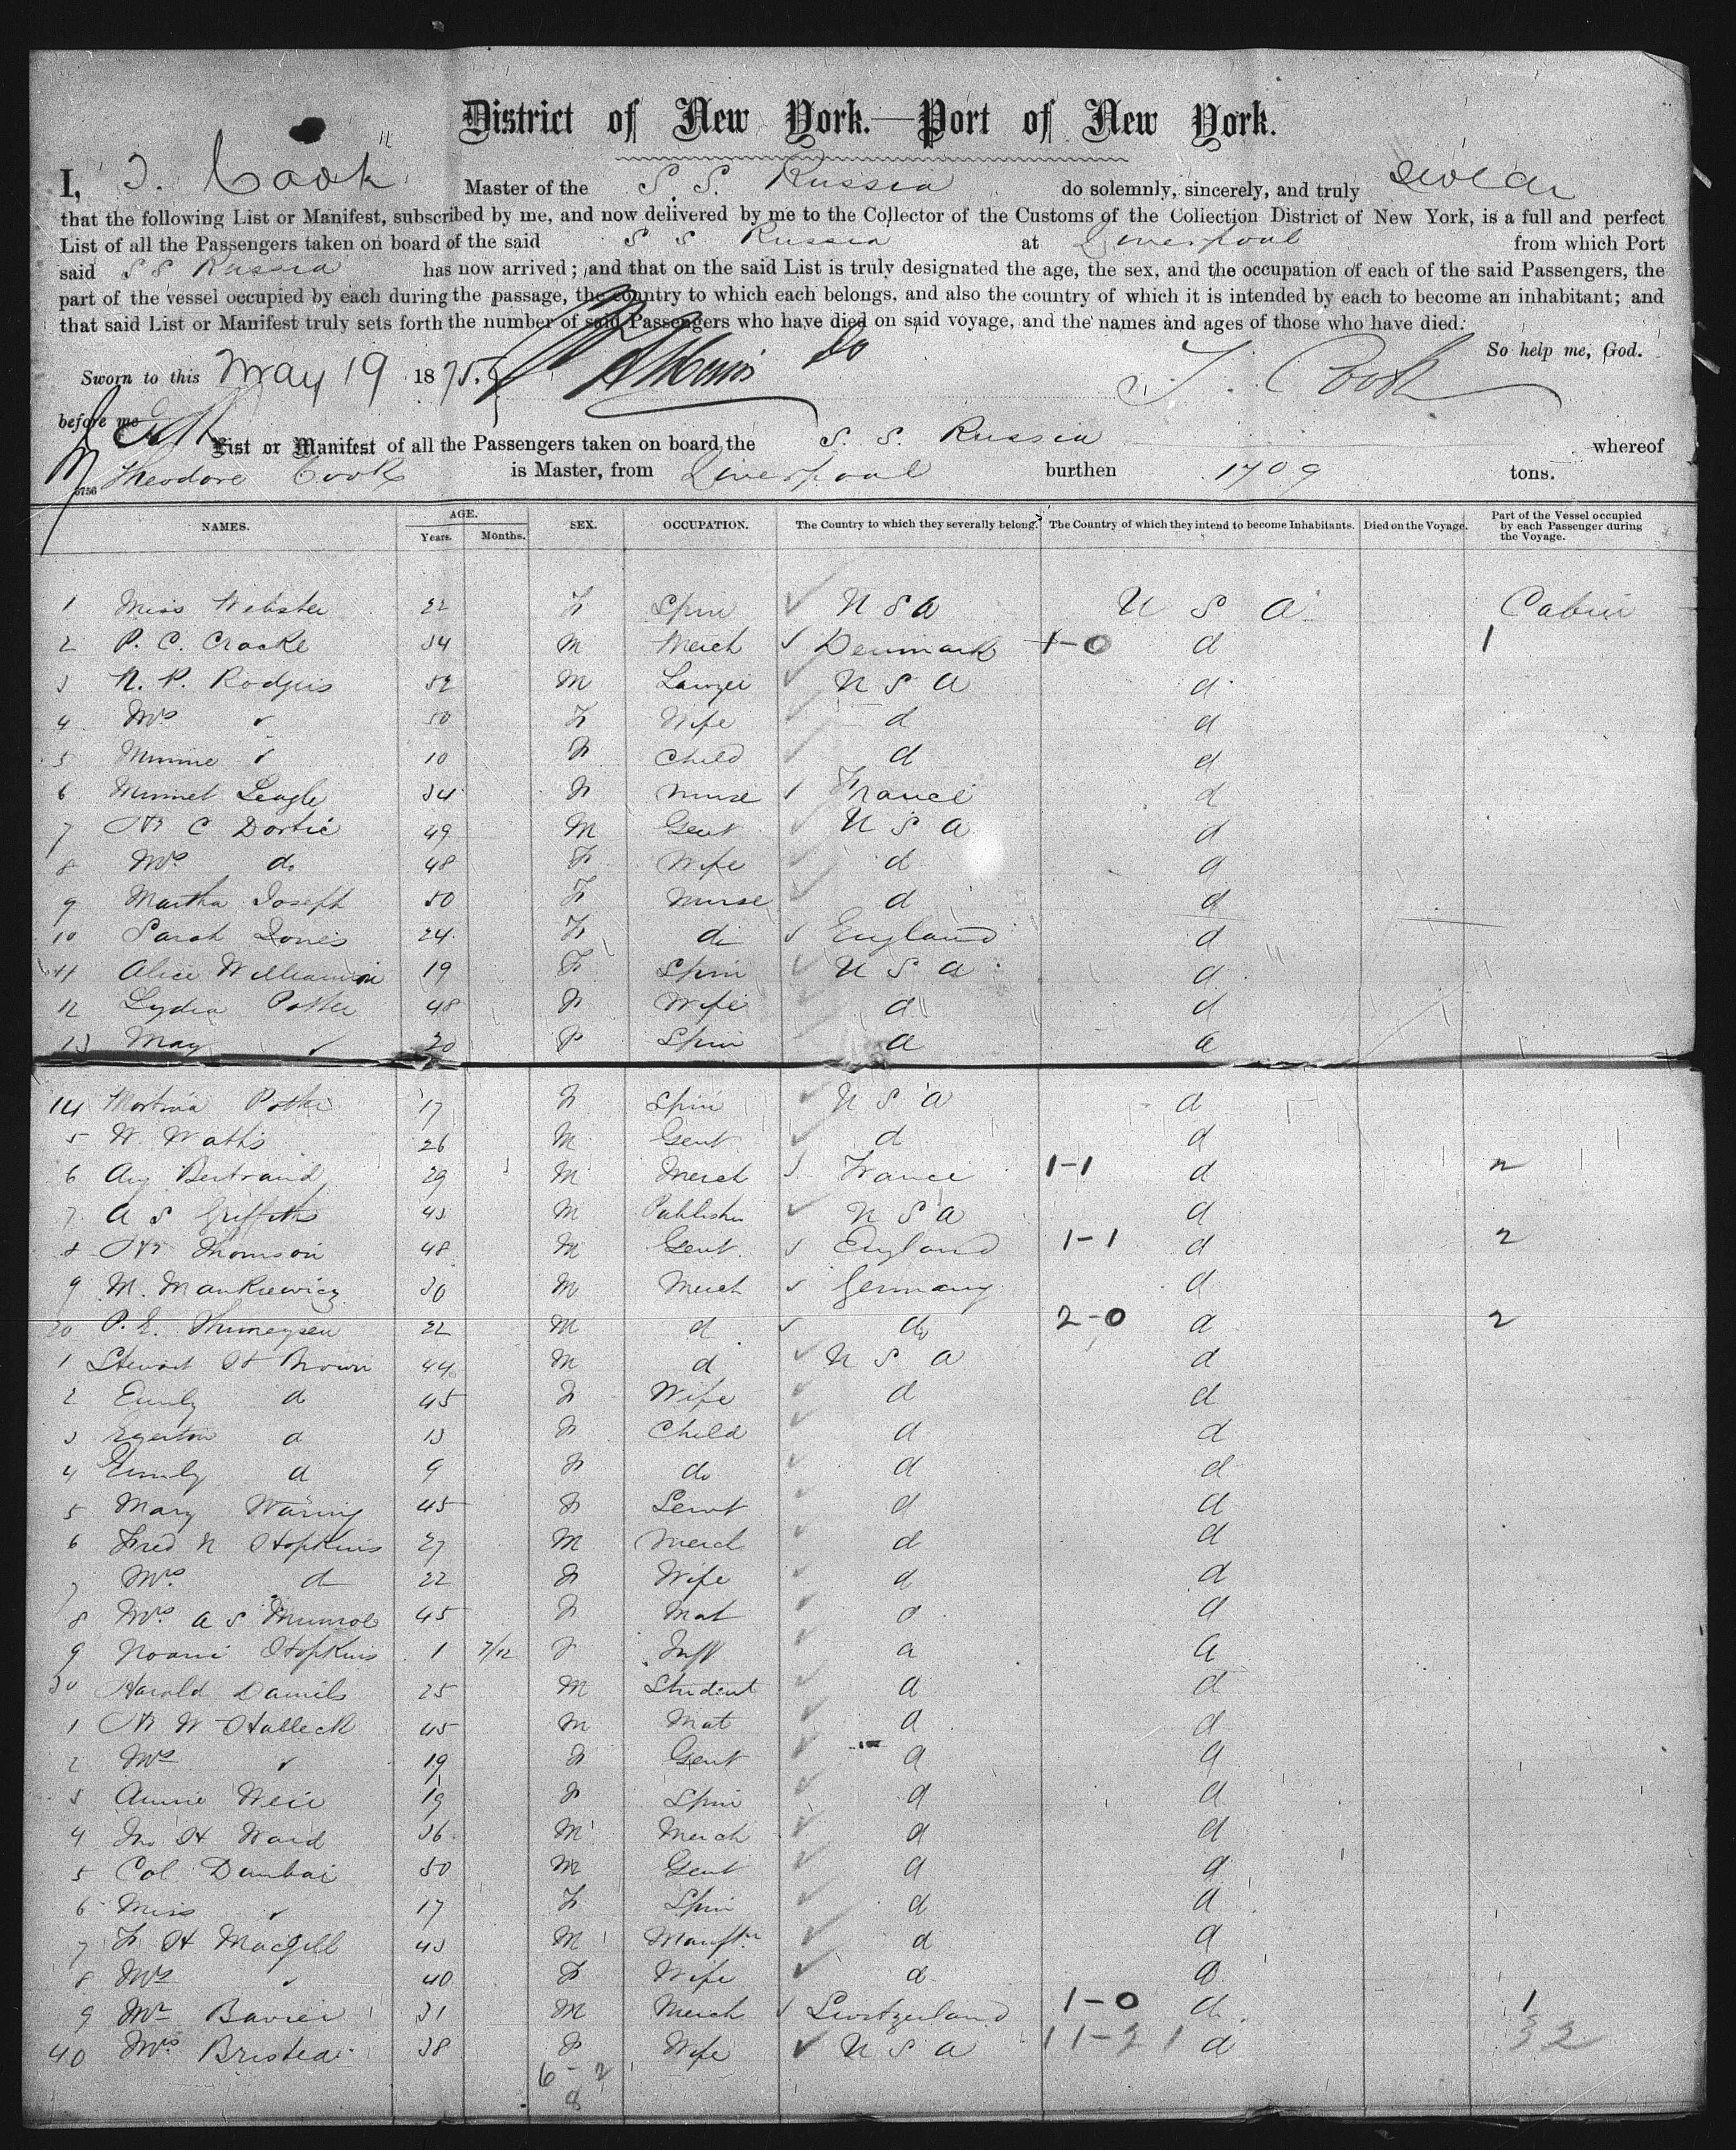 District of New York.—Port of New York.
I, T. Cook Master of the S. S. Russia do solemnly, sincerely, and truly swear
that the following List or Manifest, subscribed by me, and now delivered by me to the Collector of the Customs of the Collection District of New York, is a full and perfect
List of all the Passengers taken on board of the said S S Russia at Liverpool from which Port
said S S Russia has now arrived; and that on the said List is truly designated the age, the sex, and the occupation of each of the said Passengers, the
part of the vessel occupied by each during the passage, the country to which each belongs, and also the country of which it is intended by each to become an inhabitant; and
that said List or Manifest truly sets forth the number of said Passengers who have died on said voyage, and the names and ages of those who have died.
So help me, God.
Sworn to this May 19 1875. T. Cook
before me
List or Manifest of all the Passengers taken on board the S. S. Russia whereof
Theodore Cook is Master, from Liverpool burthen 1709 tons.
NAMES. AGE. Years. Months. SEX. OCCUPATION. The Country to which they severally belong. The Country of which they intend to become Inhabitants. Died on the Voyage. Part of the Vessel occupied by each Passenger during the Voyage.
1 Miss Webster 22 F Spin U S A U S A Cabin
2 P. C. 34 M Merch Denmark 1-0 d 1
3 N. P. Rodgers 52 M Lawyer U S A d
4 Mrs " 50 F Wife d d
5 Minnie " 10 F Child d d
6 34 F Nurse France d
7 C Dortic 49 M Gent U S A d
8 Mrs do 48 F Wife d d
9 Martha Joseph 50 F Nurse d d
10 Sarah Jones 24 F do England d
11 Alice Williamson 19 F Spin U S A d
12 Lydia Potter 48 F Wife d d
13 May " 20 F Spin d d
14 Potter 17 F Spin U S A d
5 W. Watts 26 M Gent d d
6 Aug Bertrand 29 M Merch France 1-1 d 2
7 A S Griffiths 43 M Publisher U S A d
8 Hy Thomson 48 M Gent England 1-1 d 2
9 M. Mankiewicz 30 M Merch Germany d
20 P. E. Thurneysen 22 M d do 2-0 d 2
1 Stewart H Brown 44 M d U S A d
2 Emily d 45 F Wife d d
3 Egerton d 13 F Child d d
4 Emily d 9 F do d d
5 Mary Waring 45 F Servt d d
6 Fred N Hopkins 27 M Merch d d
7 Mrs d 22 F Wife d d
8 Mrs A S Munroe 45 F Mat d d
9 Noami Hopkins 1 7/12 F Inft d d
30 Harold Daniels 25 M Student d d
1 W Halleck 45 M Mat d d
2 Mrs " 19 F Gent d d
3 Annie Weir 19 F Spin d d
4 Jno H Ward 36 M Merch d d
5 Col Dunbar 50 M Gent d d
6 Miss " 17 F Spin d d
7 F H Macgill 43 M Manftr d d
8 Mrs " 40 F Wife d d
9 Mr Bavier 31 M Merch Switzerland 1-0 d 1
40 Mrs 38 F Wife U S A 11-21 d 32
6-2
8